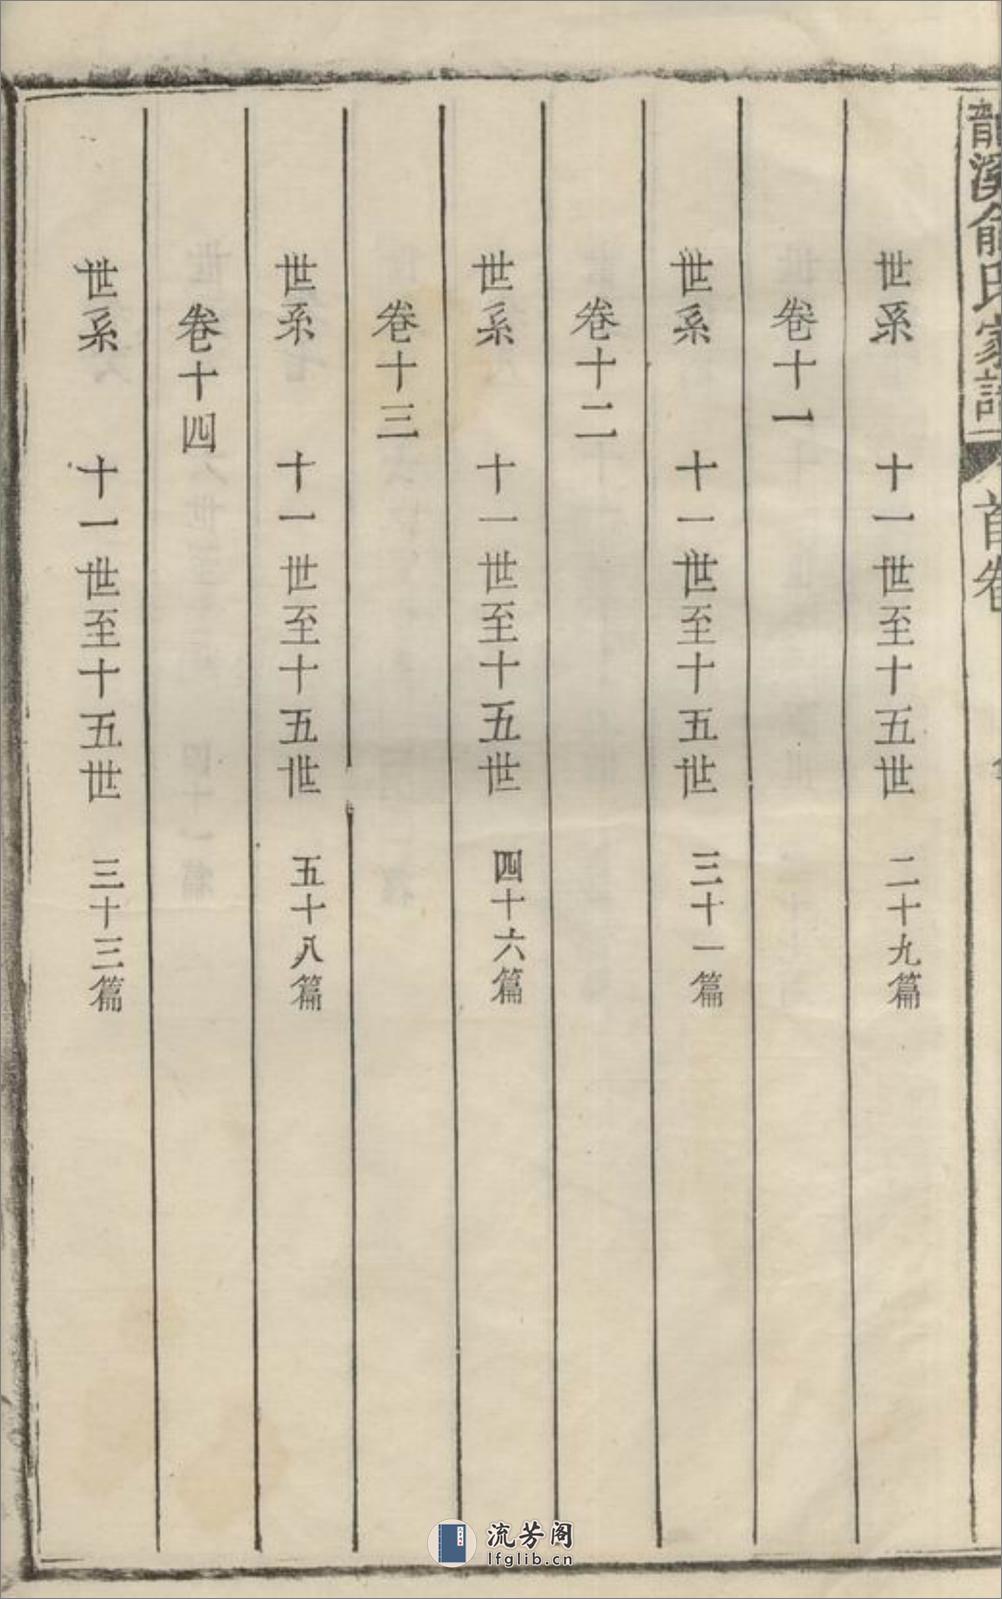 龍溪俞氏家譜 首卷
世系 十一世至十五世 二十九篇
卷十一
世系 十一世至十五世 三十一篇
卷十二
世系 十一世至十五世 四十六篇
卷十三
世系 十一世至十五世 五十八篇
卷十四
世系 十一世至十五世 三十三篇
流芳阁
lfglib.cn